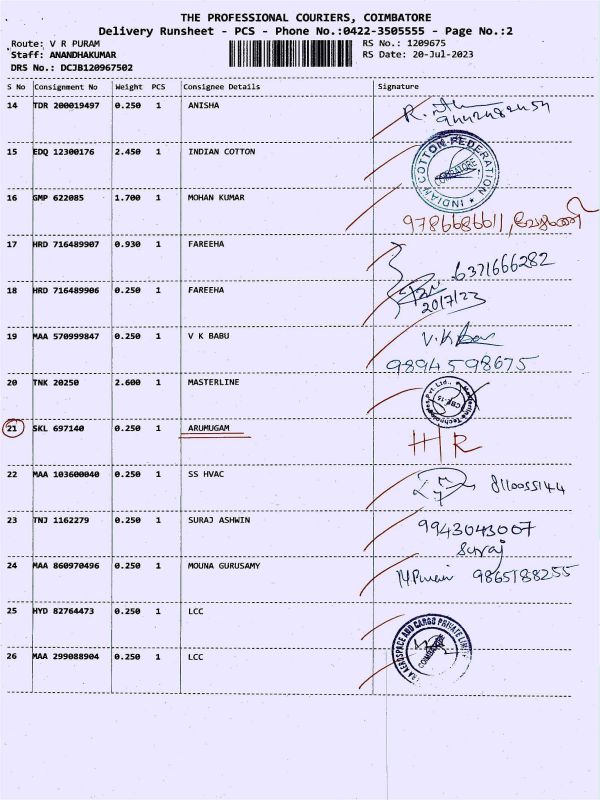 THE PROFESSIONAL COURIERS, COIMBATORE
Delivery Runsheet - PCS - Phone No.:0422-3505555 - Page No.:2
Route: V R PURAM RS No.: 1209675
Staff: ANANDHAKUMAR RS Date: 20-Jul-2023
DRS No.: DCJB120967502
S No Consignment No Weight PCS Consignee Details Signature
14 TDR 200019497 0.250 1 ANISHA
9442482454
15 EDQ 12300176 2.450 1 INDIAN COTTON INDIAN COTTON FEDERATION COIMBATORE
16 GMP 622085 1.700 1 MOHAN KUMAR
9786686611,
17 HRD 716489907 0.930 1 FAREEHA
6371666282
18 HRD 716489906 0.250 1 FAREEHA
20/7/23
19 MAA 570999847 0.250 1 V K BABU V.K
9894598675
20 TNK 20250 2.600 1 MASTERLINE Masterline Technologies Pvt. Ltd., CBE-15
21 SKL 697140 0.250 1 ARUMUGAM
H/R
22 MAA 103600040 0.250 1 SS HVAC
8110055144
23 TNJ 1162279 0.250 1 SURAJ ASHWIN 9943043007
Suraj
24 MAA 860970496 0.250 1 MOUNA GURUSAMY 9865188255
25 HYD 82764473 0.250 1 LCC
26 MAA 299088904 0.250 1 LCC AEROSPACE AND CARGO PRIVATE LIMITED COIMBATORE